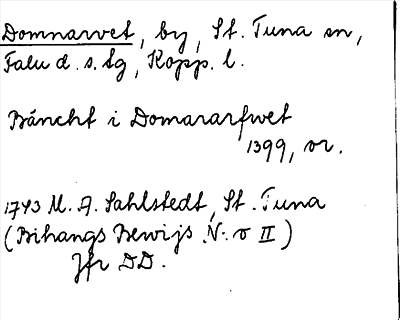 Domnarvet, by, St. Tuna sn,
Falu d. s. lg, Kopp. l.
Bäncht i Domararfwet
1399, or.
1743 M. A. Sahlstedt, St. Tuna
(Bihangs Bewijs N:o II)
Jfr DD.